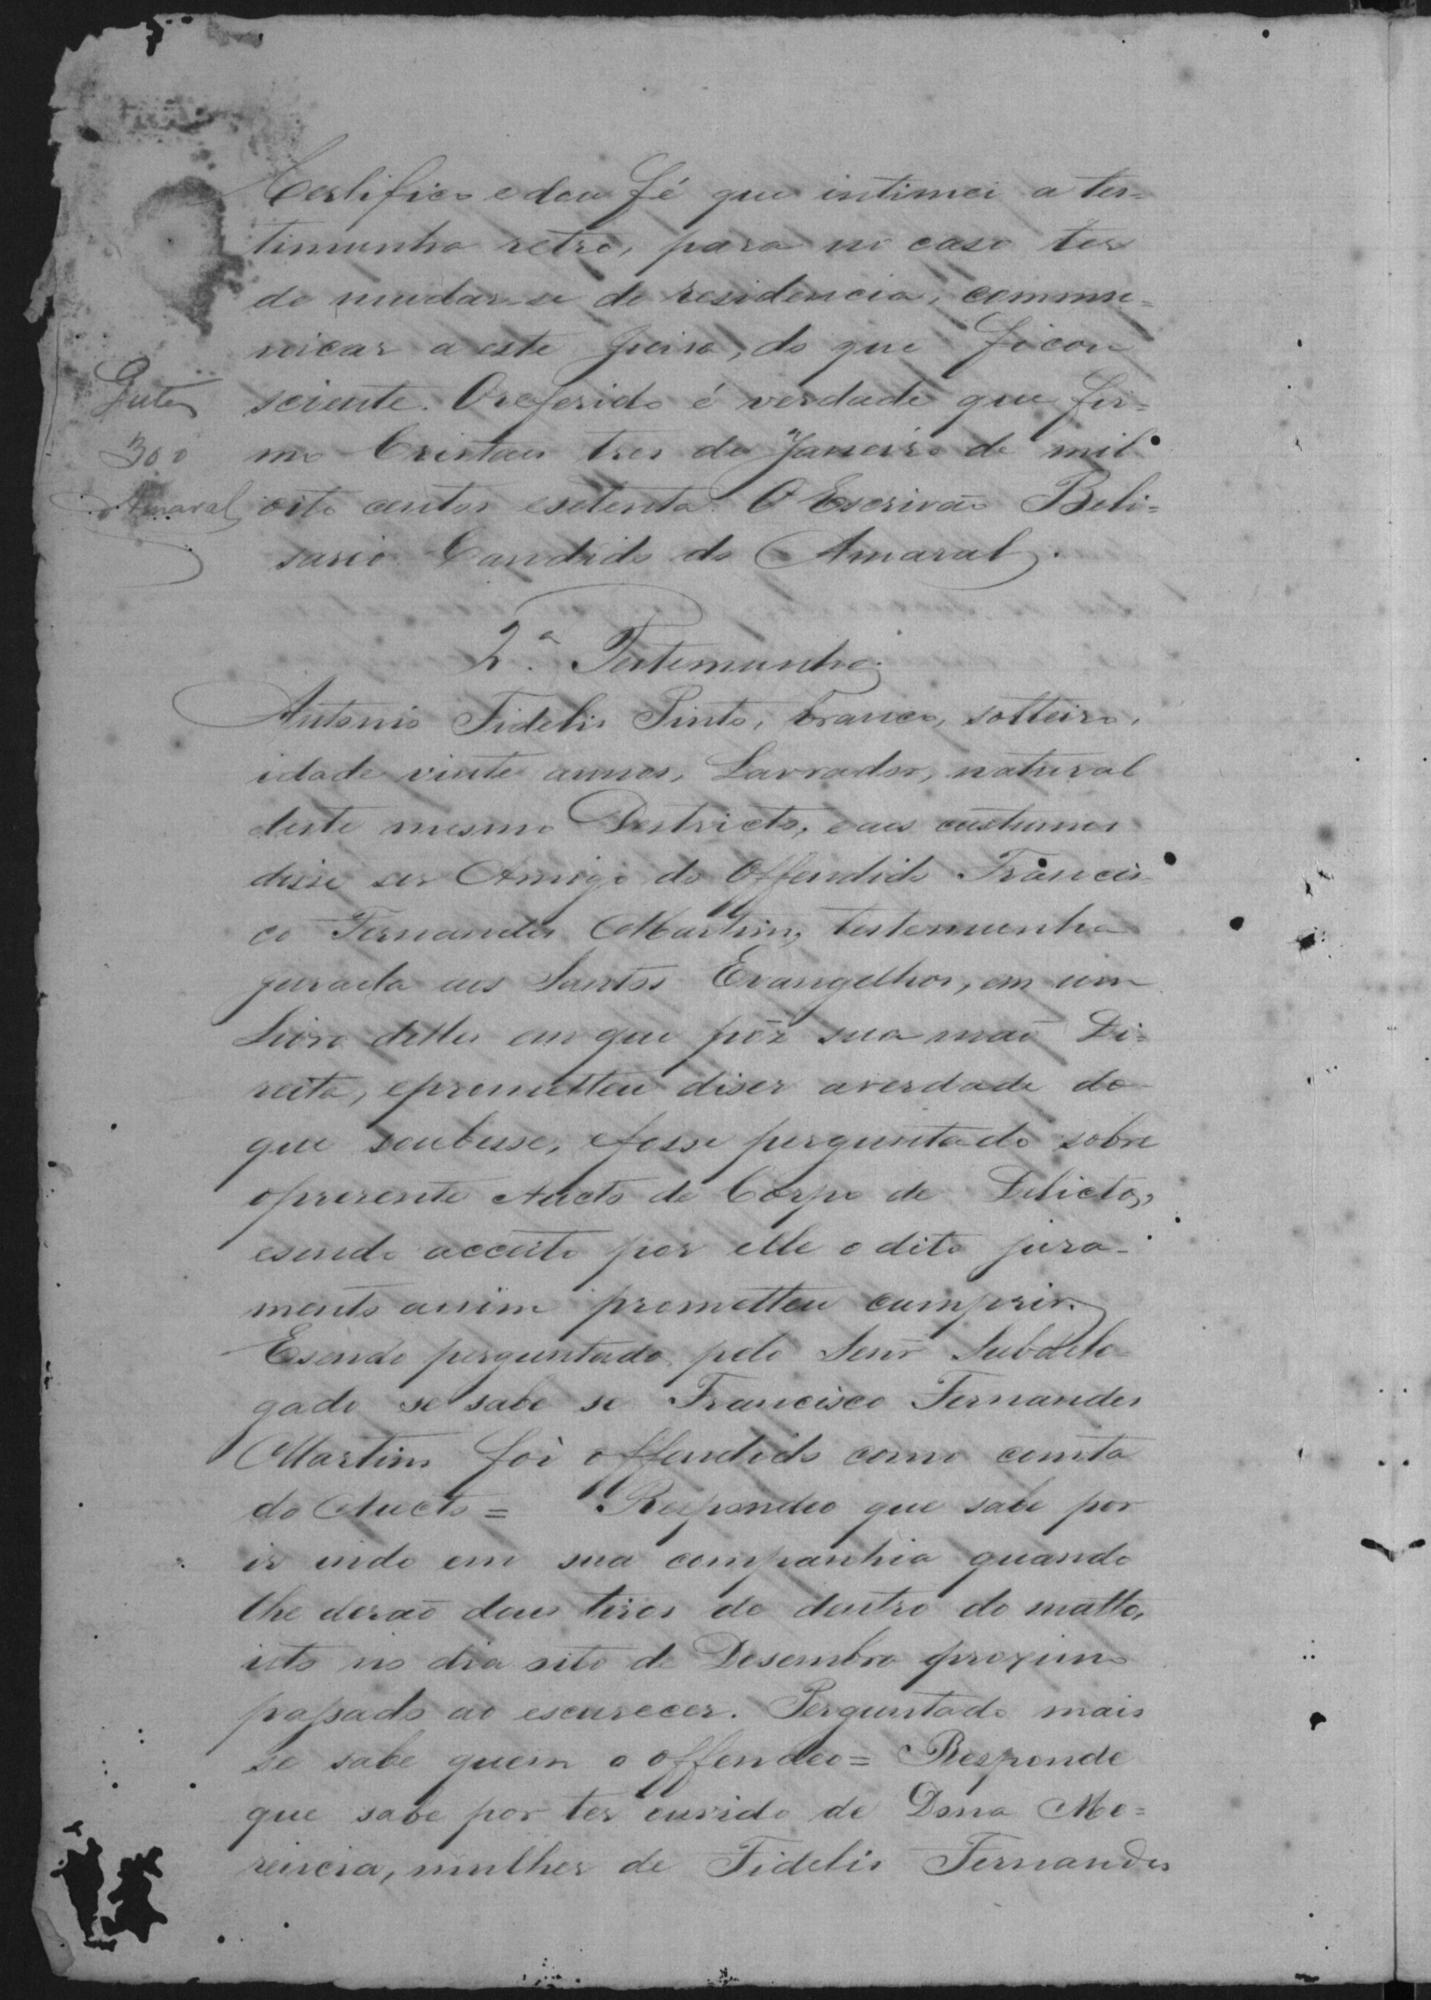 Certifico e dou fé que intimei a tes-
timunha retro, para no caso ter
de mudar-se de residencia, commu-
nicar a este juiso, do que ficou
Gutes sciente. O referido é verdade que fir-
300 mo Cristaes tres de Janeiro de mil
Amaral oito centos e setenta. O Escrivão Beli-
sario Candido do Amaral.
2.ª Testemunha
Antonio Fidelis Pinto, branco, solteiro,
idade vinte annos, Lavrador, natural
deste mesmo Destricto, e aos custumes
disse ser Amigo do Offendido Francis-
co Fernandes Martins, testemunha
jurada aos Santos Evangelhos, em um
Livro delles em que pôz sua mão Di-
reita, e prometteu diser a verdade do
que soubesse, e fosse perguntado sobre
o presente Aucto de Corpo de Delicto,
e sendo acceito por elle o dito jura-
mento assim prometteu cumprir.
E sendo perguntado pelo Senr Subdele-
gado se sabe se Francisco Fernandes
Martins foi offendido como consta
do Aucto = Respondeo que sabe por
ir indo em sua companhia quando
lhe derão dous tiros de dentro do matto,
isto no dia oito de Desembro proximo
passado ao escurecer. Perguntado mais
se sabe quem o offendeo = Responde
que sabe por ter ouvido de Dona Me-
reincia, mulher de Fidelis Fernandes